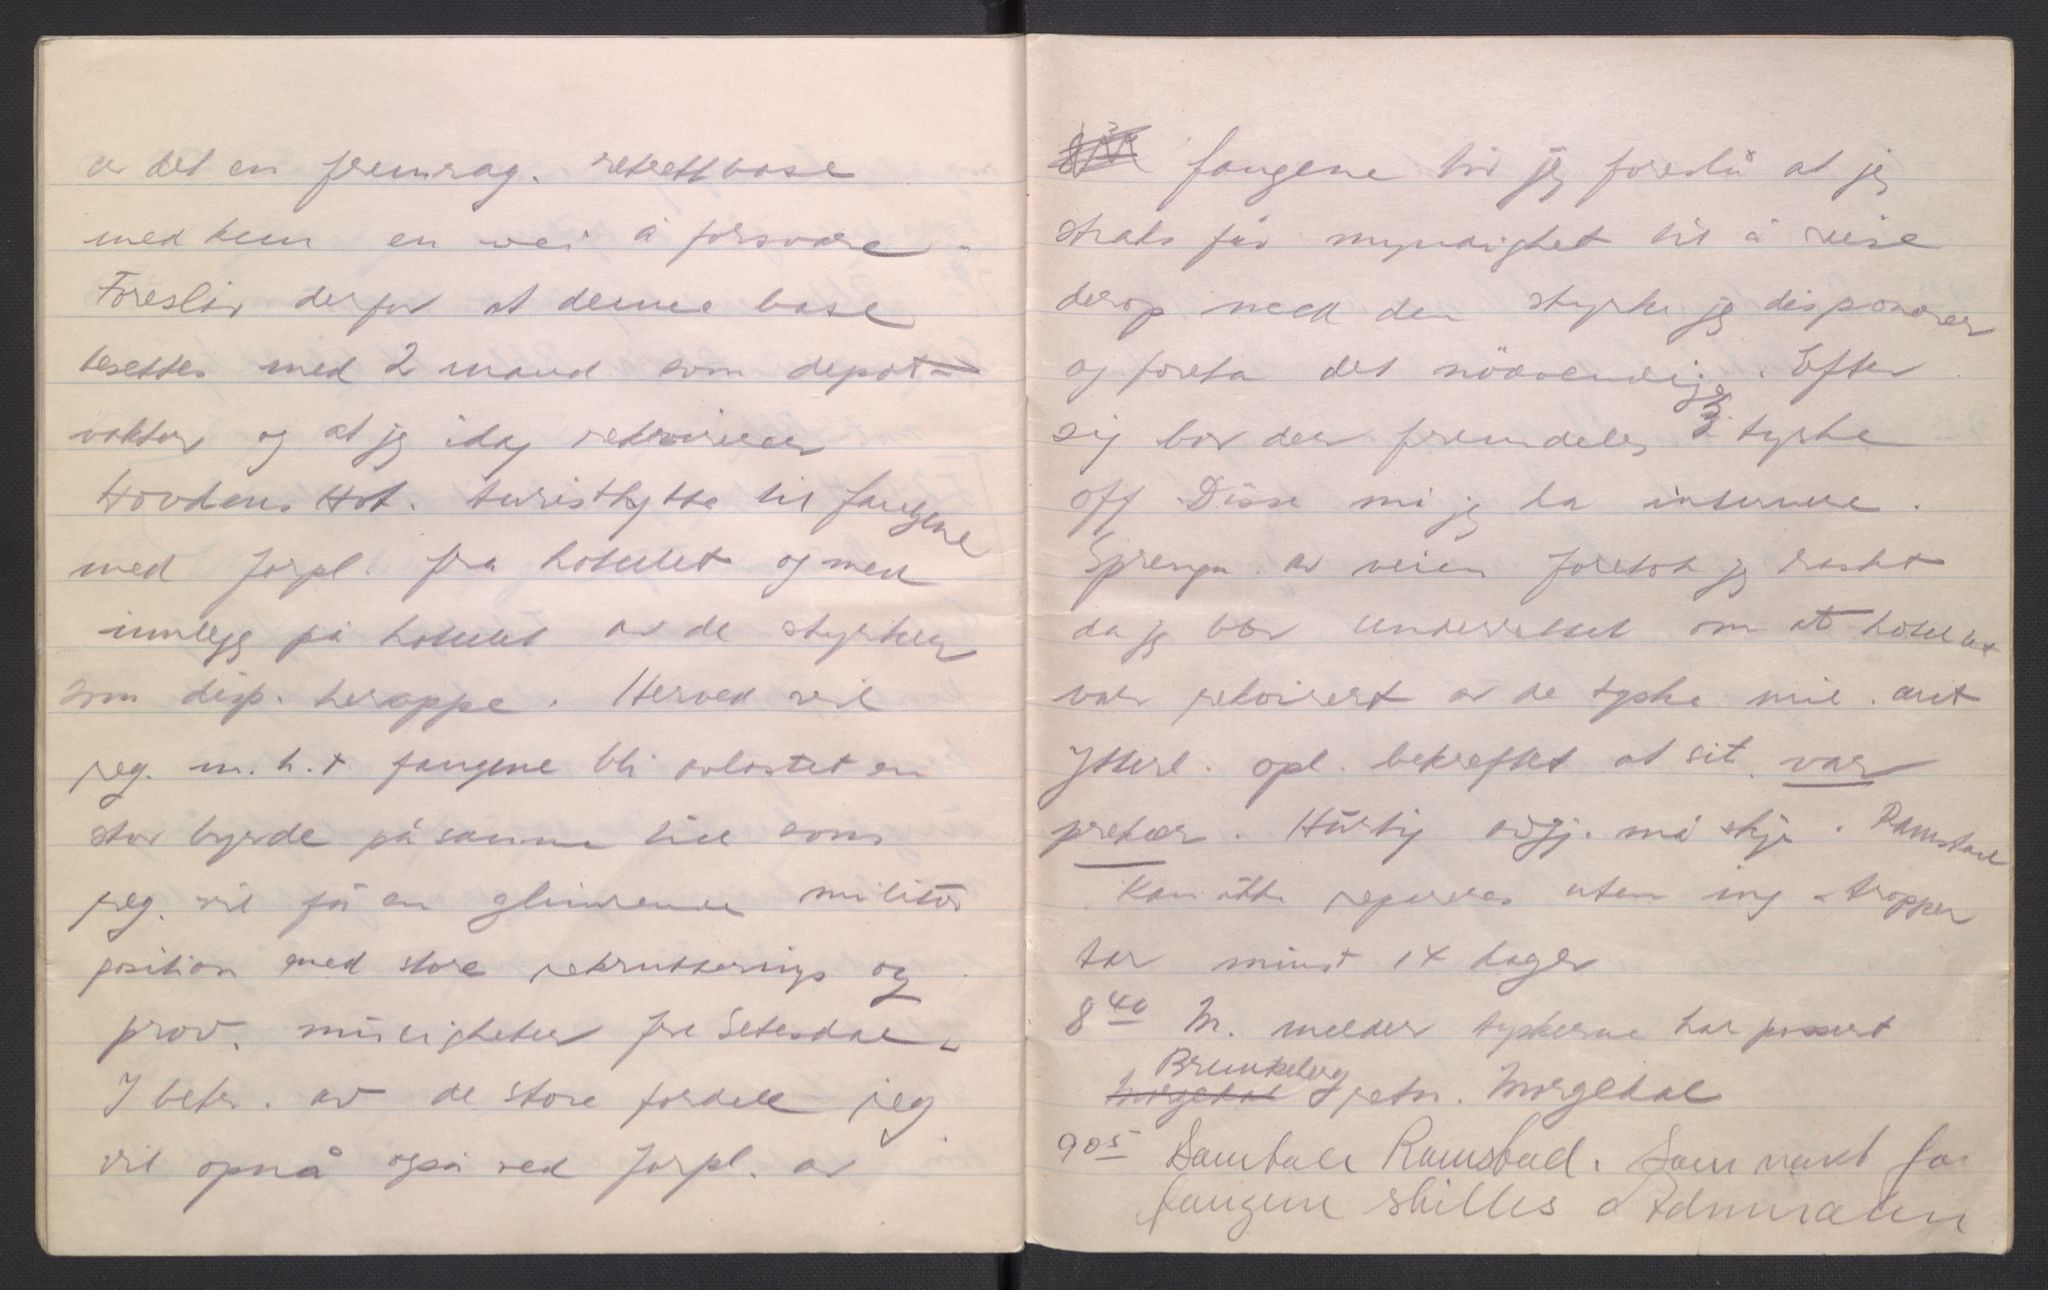 er det en fremrag. retrettbase
med kun en vei å forsvare -
Foreslår derfor at denne base
besettes med 2 mand som depot-
vakter og at jeg idag rekvirerer
Hovdens Hot. turisthytte til fangene
med forpl. fra hotellet og med
innlegg på hotellet av de styrker
som disp. heroppe. Herved vil
jeg. m.h.t. fangene bli avlastet en
stor byrde på samme tid som
jeg. vil få en glimrende militær
position med store rekrutterings og
prov. muligheter fra Setesdal.
I betr. av de store fordele jeg
vil opnå også ved forpl. av
fangene tør jeg foreslå at jeg
straks får myndighet til å reise
derop med den styrke jeg disponerer
og foreta det nødvendige. Efter
sig bor der fremdeles 3 tyske
off Disse må jeg da internere.
Sprengn. av veien foretok jeg raskt
da jeg blev underrettet om at hotellet
var rekvirert av de tyske mil. aut
Ytterl. opl. bekreftet at sit. var
prekær. Hurtig avgj. må skje. Ramstad
Kan ikke repareres uten ing - tropper
tar minst 14 dager
8 40 M. melder tyskerne har passert
Morgedal Brunkeberg retn. Morgedal
9 05 Samtale Ramstad. Som vakt for
fangene stilles